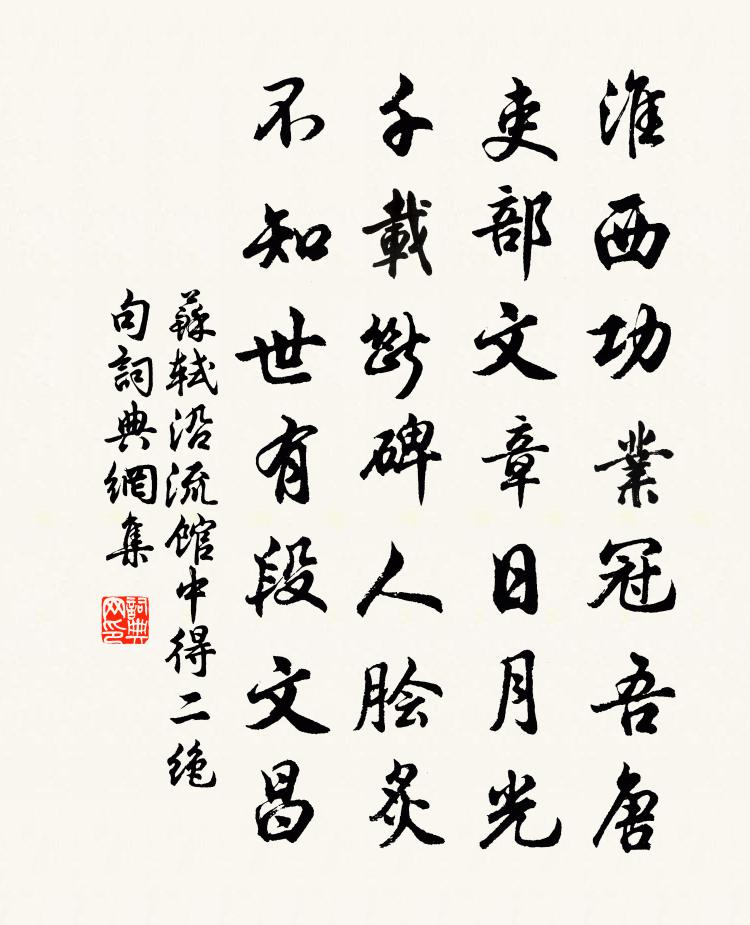 淮西功業冠吾唐
吏部文章日月光
千載斷碑人膾炙
不知世有段文昌
蘇軾沿流館中得二绝
句詞典網集
詞典
网印